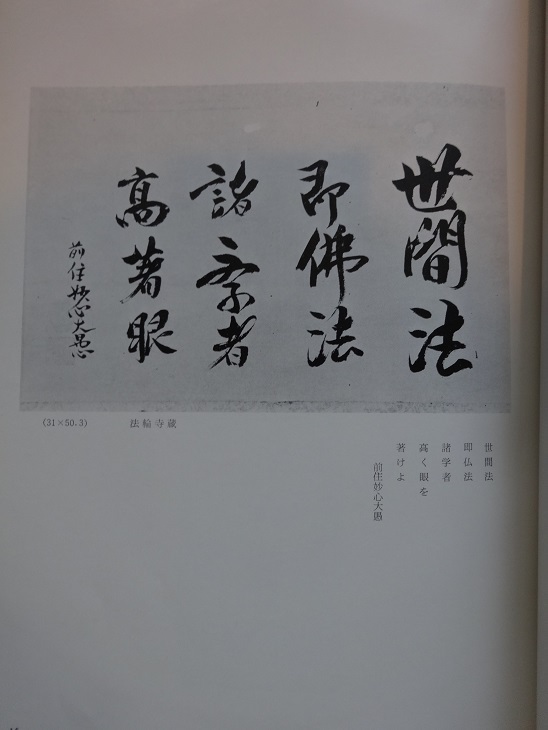 世間法
即佛法
諸学者
高著眼
前住妙心大愚
(31×50.3)　法輪寺蔵
世間法
即仏法
諸学者
高く眼を
著けよ
前住妙心大愚